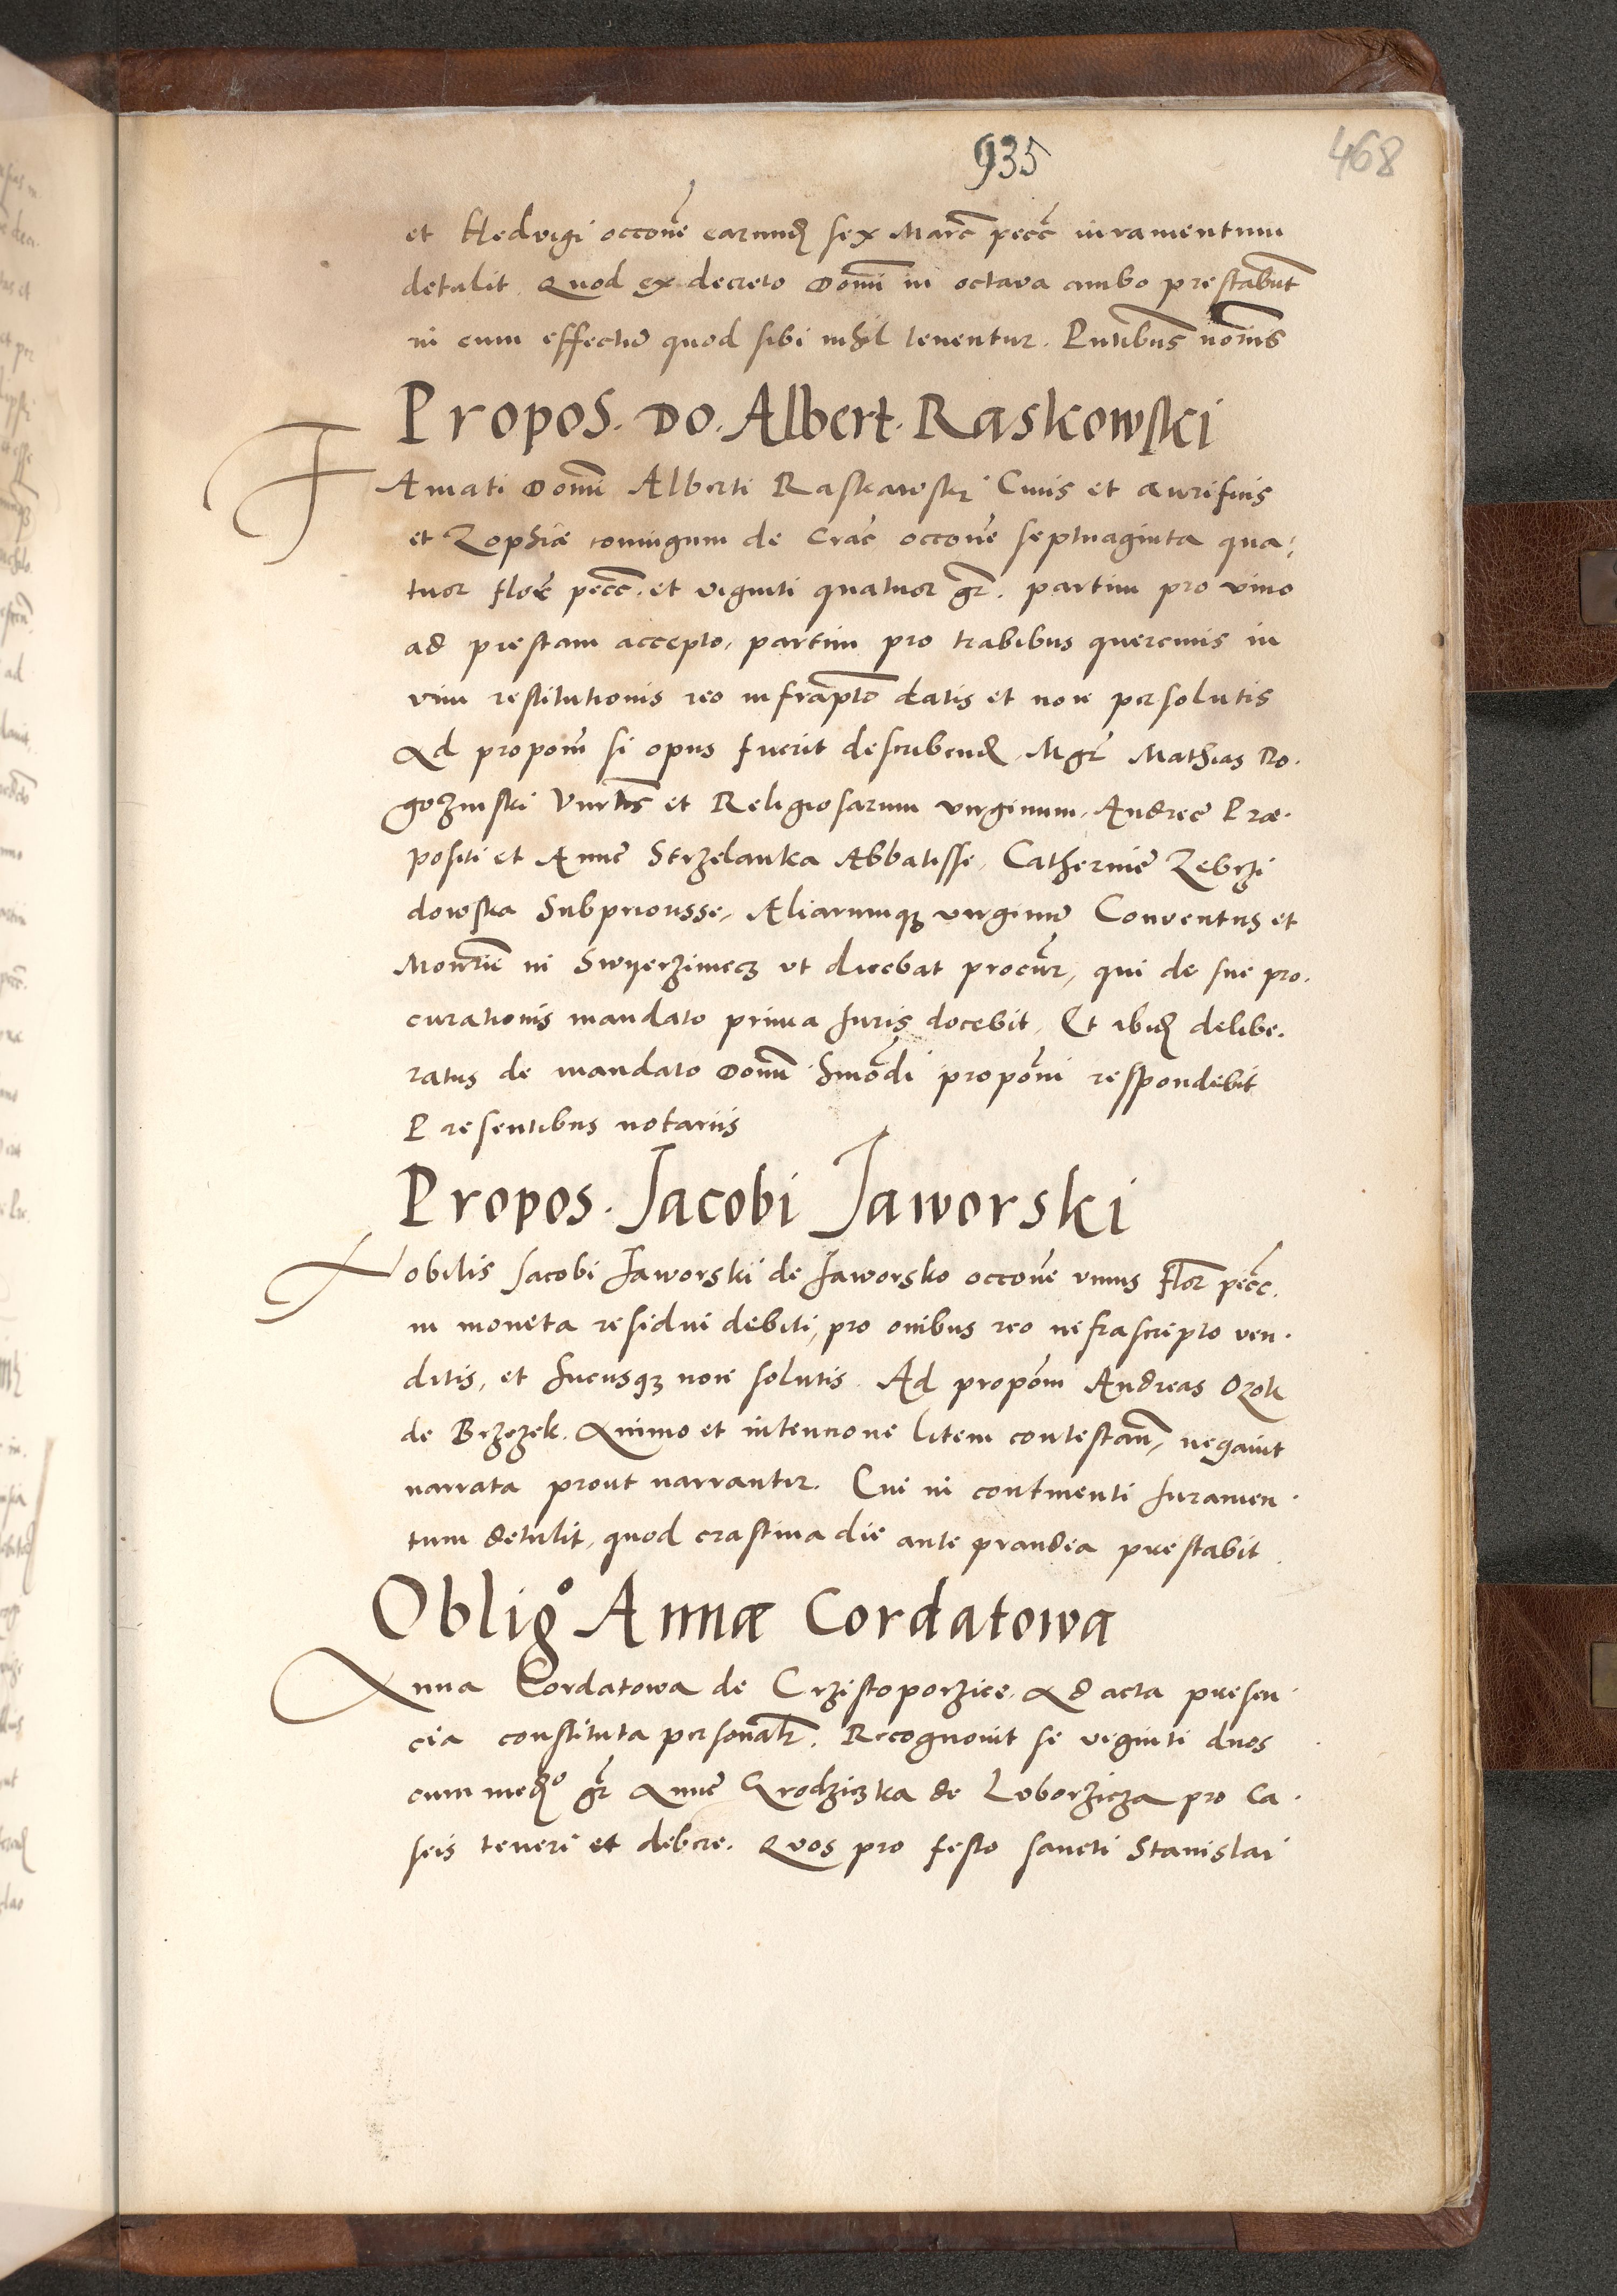 935
468
et Hedvigi occone earund sex Marc pecc iuramentum
detulit. Quod ex decreto Domi in octava ambo prestabunt
in eum effectum quod sibi nihil tenentur. Pntibus notariis
Propos. Do. Albert. Raskowski
Famati Domi Alberti Raskawski Civis et aurificis
et Zophiæ coniugum de Crac occone septuaginta qua:
tuor flor pecc. et viginti quatuor gr. partim pro vino
ad prestam accepto, partim pro trabibus quercinis in
vim restitutionis reo infrapto datis et non persolutis
Ad propom si opus fuerit describend, Mgr Mathias Ro.
gozinski et Religiosarum virginum, Andree Præ.
positi et Anne Strzelanka Abbatisse, Catherine Zebrzi
dowska Subpriorisse, Aliarumq virginum Conventus et
Monrie in Swyerzinecz ut dicebat procur, qui de sue pro.
curationis mandato prima Iuris docebit, Et ibid delibe.
ratus de mandato Domi proponi respondebit
Presentibus notariis
Propos. Jacobi Jaworski
Nobilis Jacobi Jaworski de Jaworsko occone unius flor pecc.
in moneta residui debiti, pro ovibus reo infrascripto ven.
ditis, et hucusq non solutis. Ad propom Andreas Ozok
de Brzezek. Animo et intencione litem contestan, negavit
narrata prout narrantur. Cui in continenti Iuramen.
tum detulit, quod crastina die ante prandia prestabit.
Oblig° Annæ Cordatowa
Anna Cordatowa de Crzestoporzice. Ad acta presen.
cia constituta personalr. Recognovit se viginti duos
cum med° gr Anne Grodziczka de Loborzicza pro Ca.
seis teneri et debere. Quos pro festo sancti Stanislai